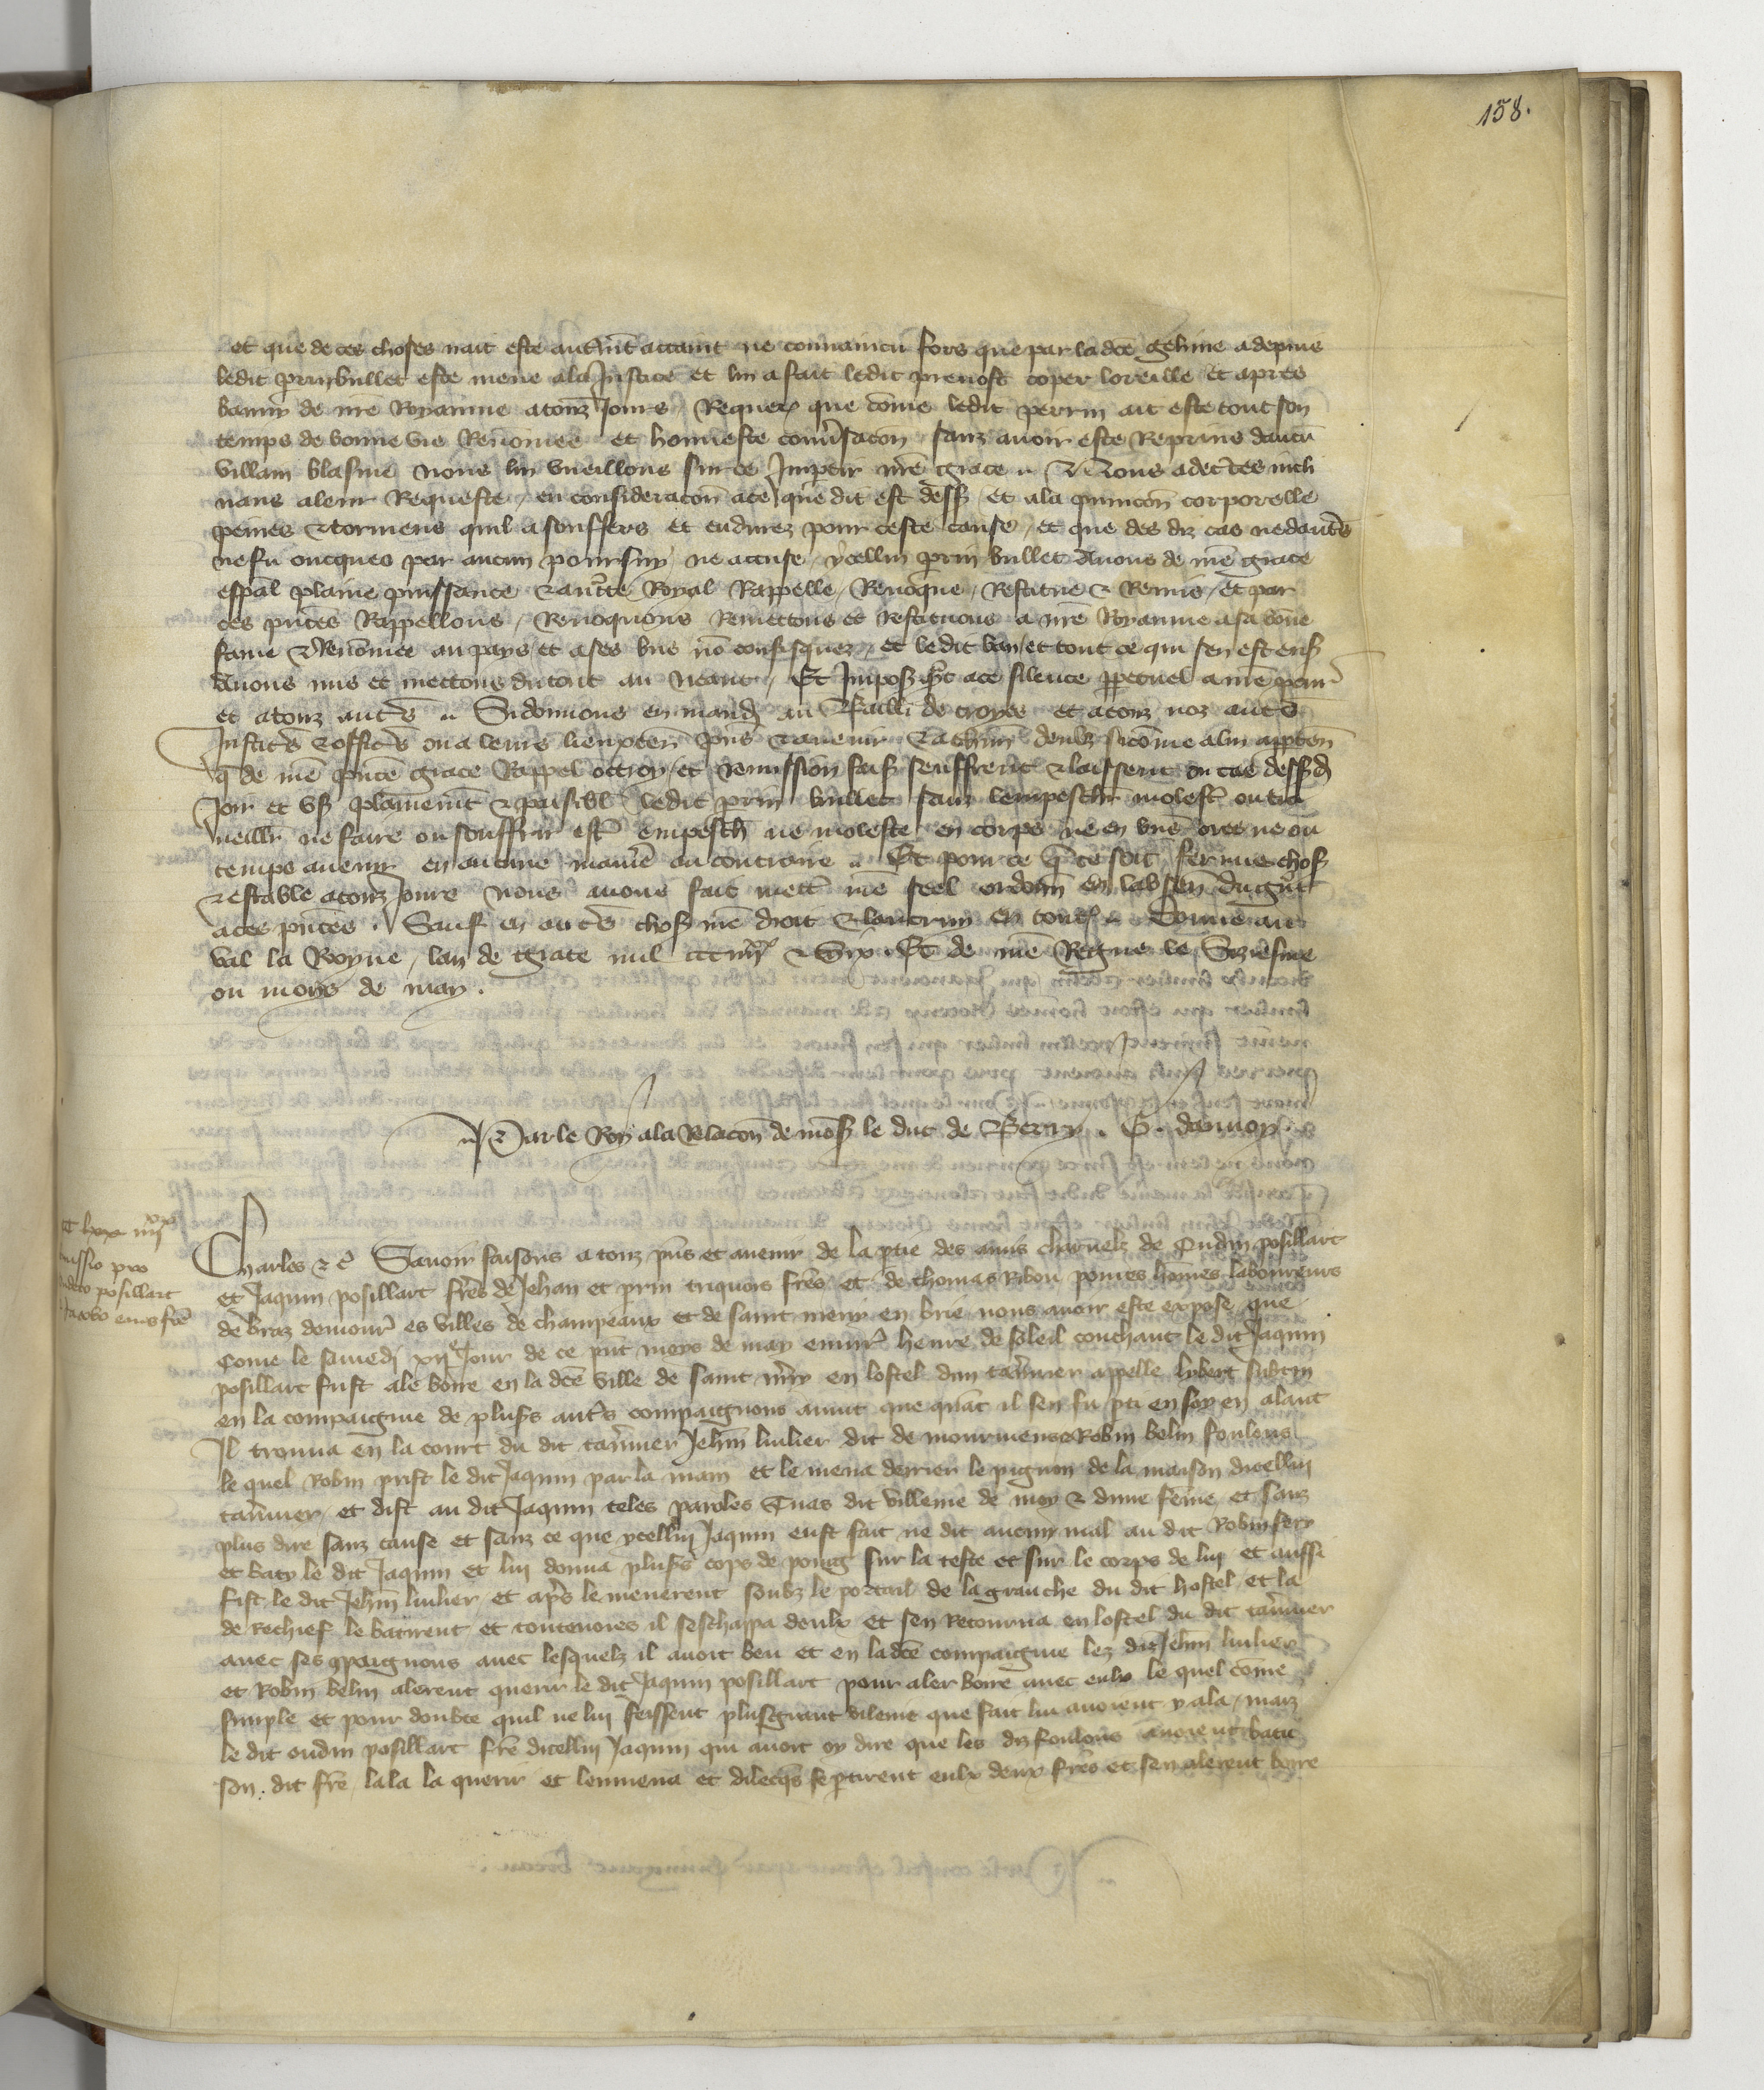 158.
et que de ces choses nait este autrmt attaint ne convaincu fors que par ladce gehine a depuis
ledit prin bullet este mene ala Justice et lui a fait ledit prevost coper loreille et apres
banny de nre Royaume a touz Jours Requerz que come ledit perrin ait este tout son
temps de bonne vie Renomee et honneste convsacon sanz avoir este Reprins daucu
villain blasme nous lui vueillons sur ce Impartir nre grace Nous adectes incli
nans a leur Requeste en consideracon a ce que dit est dess et ala quincon corporelle
peines & tormens quil a souffers et endurez pour ceste cause et que des diz cas ne dautes
ne fu oncques par aucun poursuy ne accuse ycellui prin bullet Avons de nre grace
espal plaine puissance & aucte Royal Rappelle Revoque Restitue & Remis et par
ces pntes Rappellons Revoquons Remettons et restituons a nre Royaume a sa bone
fame & Renomee au pays et a ses bns no confisquez et ledit ban et tout ce qui sen est ens
Avons mis et mettons du tout au Neant Et Imposs qt a ce silence ppetuel a nre pcur
et a touz auts Si donnons en mand au Bailli de troyes et a touz noz auts
Justics & offics ou a leurs lieuxten pns & avenir & a chun deulz si come a lui appten
q de nre pnte grace Rappel ottroy et Remission fass seuffrent & laissent ou cas dessd
Joir et us plainemt & paisibl ledit prin bullet sanz lempeschr molestr ou tra
veillr ne faire ou souffrir estr empesch ne moleste en corps ne en bns ores ne ou
temps avenir en aucune manie au contraire Et pour ce q ce soit ferme chos
& estable a touz Jours nous avons fait mettr nre seel ordonn en labsen du grt
a ces pntes Sauf en auts chos nre droit & lautruy en toutes Donne au
val la Royne lan de grace mil ccc iiiixx & Six Et de nre Regne le Sizesme
ou moys de may
Par le Roy ala Relacon de mons le duc de Berry G. daunoy
missio pro
odeto posillart
Jacobo eius fre
Charles &c Savoir faisons a touz pns et avenir de la ptie des amis charnelz de Oudin posillart
et Jaquin posillart fres de Jehan et prin triquois fres et de thomas Ribou povres homes laboureurs
de braz demour es villes de champeaux et de saint mery en brie nous avoir este expose que
Come le samedi xii Jour de ce pnt moys de may envir heure de soleil couchant le dit Jaquin
posillart fust ale boire en la dce ville de saint mry en lostel dun tavrnier appelle lybert
en la compaignie de pluss auts compaignons avint que quat il sen fu pti en soy en alant
Il trouva en la court du dit tavrnier Jehn luilier dit de & Robin belin foulons
le quel Robin prist le dit Jaquin par la main et le mena derrier le pignon de la maison dicellui
tavrnier et dist au dit Jaquin teles paroles Tu as dit villenie de moy & dune feme et sanz
plus dire sanz cause et sanz ce que ycellui Jaquin eust fait ne dit aucun mal au dit Robin fery
et baty le dit Jaquin et lui donna pluss cops de poing sur la teste et sur le corps de lui et aussi
fist le dit Jehn luilier et aps le menerent soubz le portail de la granche du dit hostel et la
de Rechief le batirent et toutevoies il seschappa deulx et sen Retourna en lostel du dit tavrnier
avec ses cpaignons avec lesquelz il avoit beu et en ladce compaignie lez diz Jehn luilier
et Robin belin alerent querir le dit Jaquin posillart pour aler boire avec eulx le quel come
simple et pour doubte quil ne lui feissent plus grant vilenie que fait lui avoient y ala maiz
le dit oudin posillart fre dicellui Jaquin qui avoit oy dire que les diz foulons avoient batu
son dit fre lala la querir et lenmena et dilecqs se ptirent eulx deux fres et sen alerent boire